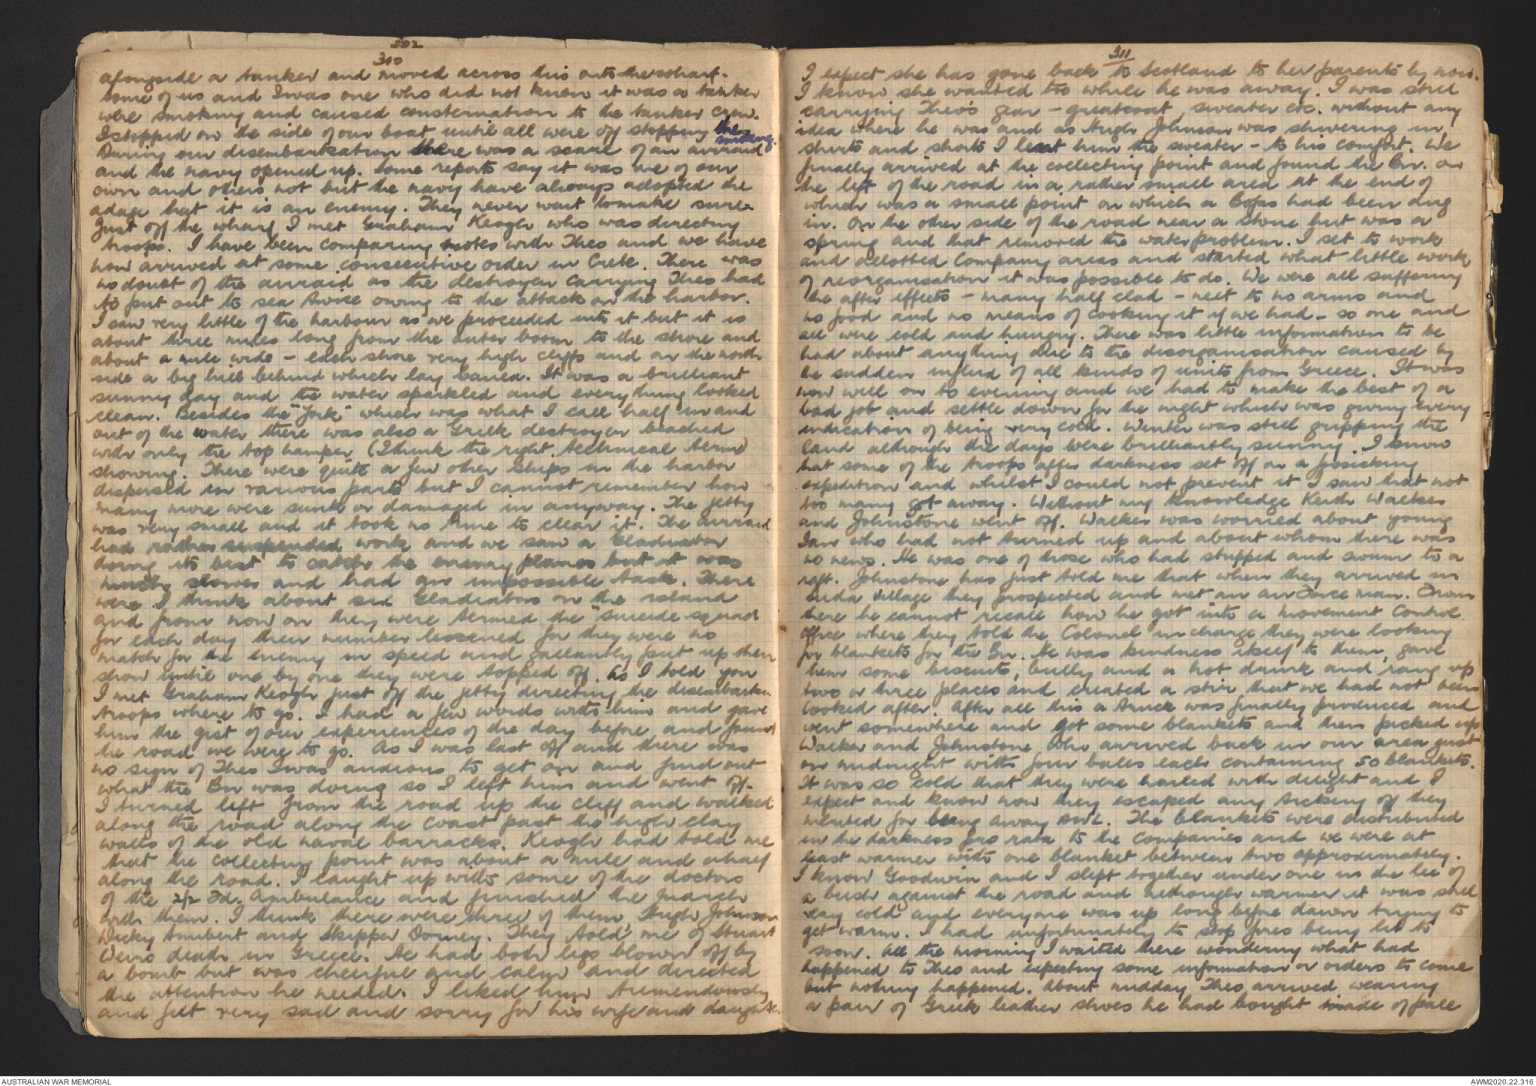 302
310
alongside a tanker and moved across this onto the wharf.
Some of us and I was one who did not know it was a tanker
were smoking and caused consternation to the tanker crew.
I stopped on the side of our boat until all were off stopping the
smoking.
During our disembarkation there was a scare of an airraid
and the navy opened up. Some reports say it was one of our
own and others not but the navy have always adopted the
adage that it is an enemy. They never wait to make sure.
Just off the wharf I met Graham Keogh who was directing
troops. I have been comparing notes with Theo and we have
now arrived at some consecutive order in Crete. There was
no doubt of the airraid as the destroyer carrying Theo had
to put out to sea twice owing to the attack on the harbor.
I saw very little of the harbour as we proceeded into it but it is
about three miles long from the outer boom to the shore and
about a mile wide - each shore very high cliffs and on the north
side a big hill behind which lay Canea. It was a brilliant
sunny day and the water sparkled and everything looked
clean. Besides the "York" which was what I call half in and
out of the water there was also a Greek destroyer beached
with only the top hamper (I think the right technical term)
showing. There were quite a few other ships in the harbor
dispersed in various parts but I cannot remember how
many more were sunk or damaged in anyway. The jetty
was very small and it took no time to clear it. The airraid
had rather suspended work and we saw a Gladiator
doing its best to catch the enemy planes but it was
much slower and had an impossible task. There
were I think about six Gladiators on the island
and from now on they were termed the "suicide squad"
for each day their number lessened for they were no
match for the enemy in speed and gallantly put up their
show until one by one they were topped off. As I told you
I met Graham Keogh just off the jetty directing the disembarking
troops where to go. I had a few words with him and gave
him the gist of our experiences of the day before and found
the road we were to go. As I was last off and there was
no sign of Theo I was anxious to get on and find out
what the Bn was doing so I left him and went off.
I turned left from the road up the cliff and walked
along the road along the coast past the high clay
walls of the old naval barracks. Keogh had told me
that the collecting point was about a mile and a half
along the road. I caught up with some of the doctors
of the 2/2 Fd. Ambulance and finished the march
with them. I think there were three of them, Hugh Johnson
and Skipper Dorney. They told me of Stuart
Weirs death in Greece. He had both legs blown off by
a bomb but was cheerful and calm and directed
the attention he needed. I liked him tremendously
and felt very sad and sorry for his wife and daughter.
311
I expect she has gone back to Scotland to her parents by now.
I know she wanted to while he was away. I was still
carrying Theo's gear - greatcoat, sweater etc. without any
idea where he was and as Hugh Johnson was shivering in
shorts and shorts I lent him the sweater - to his comfort. We
finally arrived at the collecting point and found the Bn. on
the left of the road in a rather small area at the end of
which was a small point on which a Bofas had been dug
in. On the other side of the road near a stone hut was a
spring and that removed the water problem. I set to work
and allotted Company areas and started what little work
of reorganisation it was possible to do. We were all suffering
the after effects - many half clad - next to no arms and
no food and no means of cooking it if we had - so one and
all were cold and hungry. There was little information to be
had about anything due to the disorganisation caused by
the sudden influx of all kinds of units from Greece. It was
now well on to evening and we had to make the best of a
bad job and settle down for the night which was giving every
indication of being very cold. Winter was still gripping the
land although the days were brilliantly sunny. I know
that some of the troops after darkness set off on a
expedition and whilst I could not prevent it I saw that not
too many got away. Without my knowledge Keith Walker
and Johnstone went off. Walker was worried about young
Ian who had not turned up and about whom there was
no news. He was one of those who had stripped and swum to a
raft. Johnstone has just told me that when they arrived in
Suda village they prospected and met an air Force man. From
there he cannot recall how he got into a movement control
office where they told the Colonel in charge they were looking
for blankets for the Bn. He was kindness itself to them, gave
them some biscuits, bully and a hot drink and rang up
two or three places and created a stir that we had not been
looked after. After all this a truck was finally produced and
went somewhere and got some blankets and then picked up
Walker and Johnstone who arrived back in our area just
on midnight with four bales each containing 50 blankets.
It was so cold that they were hailed with delight and I
expect and know now they escaped any ticking off they
merited for being away AWL. The blankets were distributed
in the darkness pro rata to the Companies and we were at
least warmer with one blanket between two approximately.
I know Goodwin and I slept together under one in the lee of
a bush against the road and although warmer it was still
very cold and everyone was up long before dawn trying to
get warm. I had unfortunately to stop fires being lit to
soon. All the morning I waited there wondering what had
happened to Theo and expecting some information or orders to come
but nothing happened. About midday Theo arrived wearing
a pair of Greek leather shoes he had bought made of pale
AUSTRALIAN WAR MEMORIAL
AWM2020.22.316